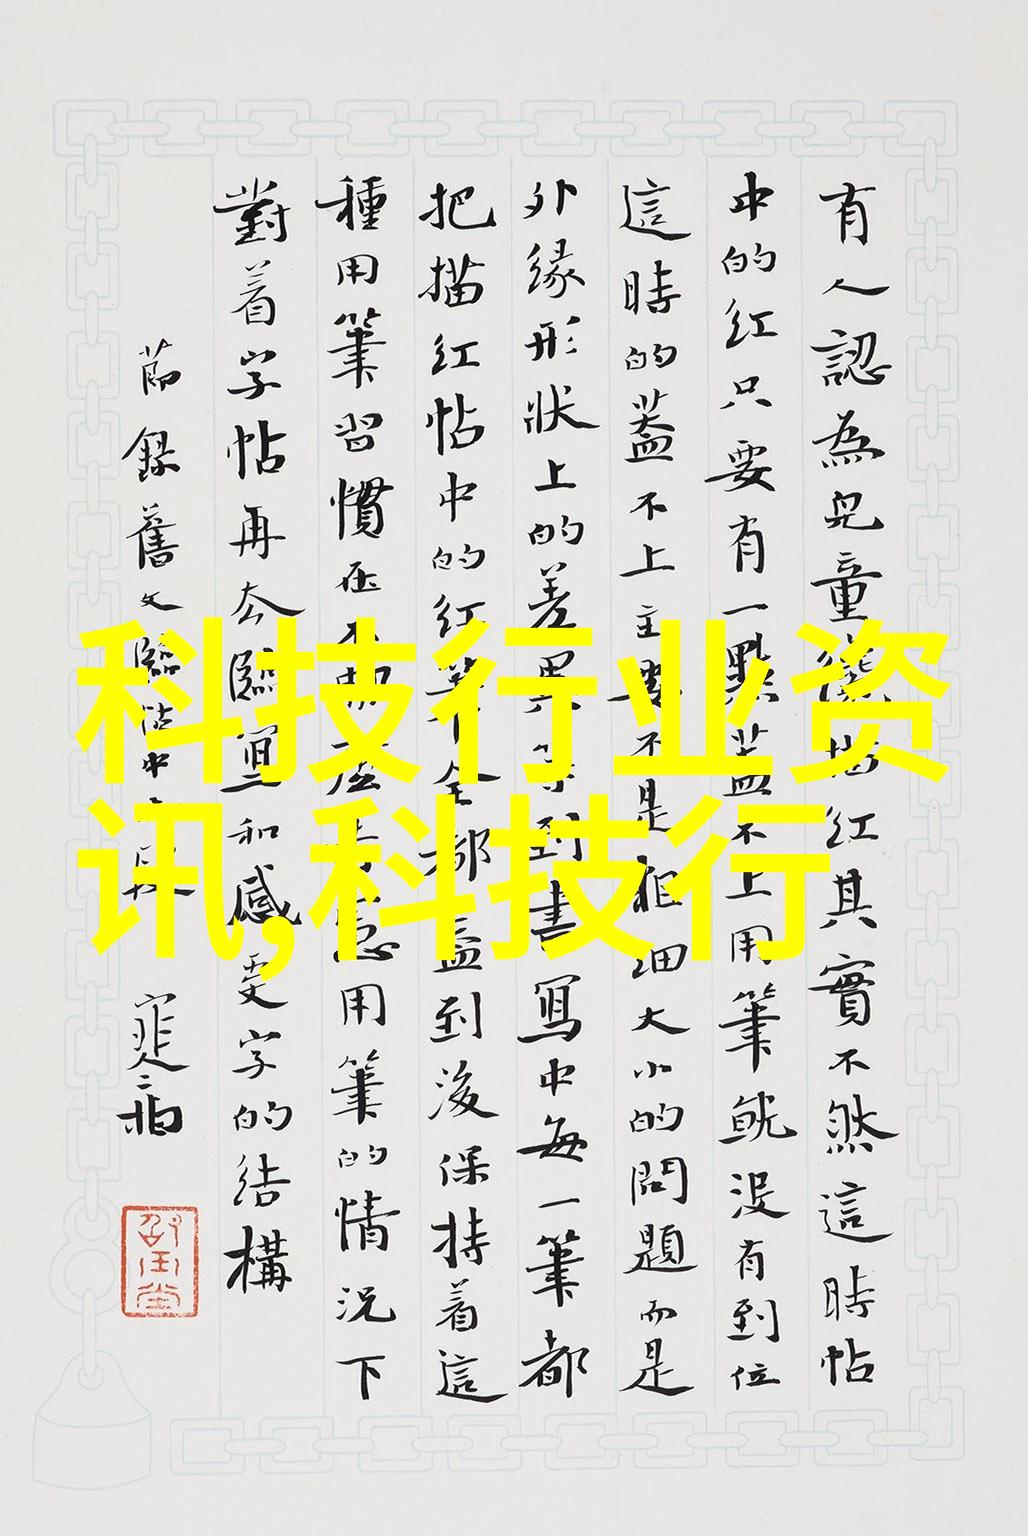 有人認為兒童描紅其實不然這時帖
中的紅只要有一點蓋不上用筆就沒有到位
這時的蓋不上主要不是粗細大小的問題而是
外緣形狀上的差異等到書寫中每一筆都
把描紅帖中的紅筆全都蓋到後保持着這
種用筆習慣在不意用筆的情況下
對着字帖再去臨寫和感受字的結構
節錄舊文臨帖中
科技行业资
讯,科技行